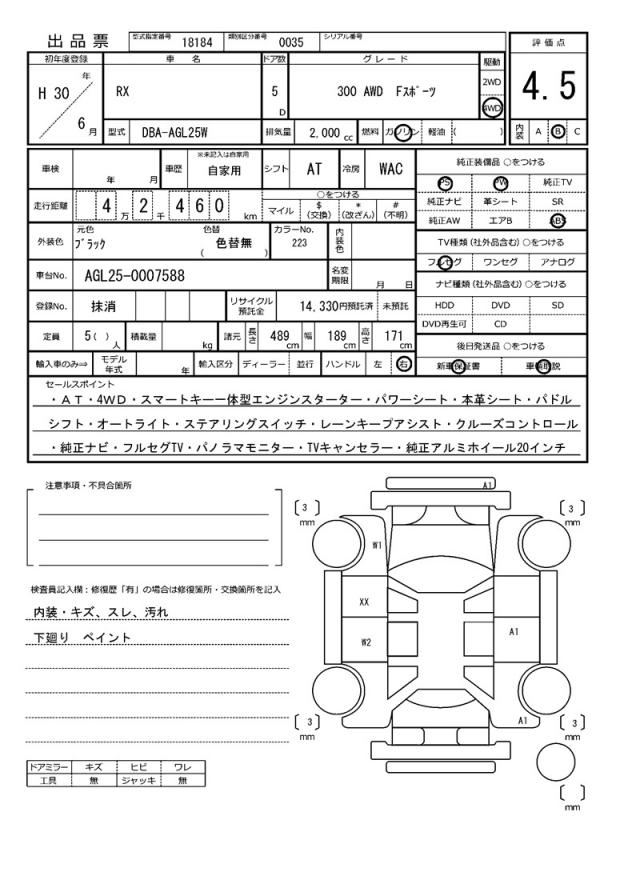 出品票 型式指定番号 18184 類別区分番号 0035 シリアル番号
評価点
4.5
内装 A B C
初年度登録 車 名 ドア数 グレード 駆動
H 30 年 6 月
RX 5 D 300 AWD Fスポーツ 2WD 4WD
型式 DBA-AGL25W 排気量 2,000 cc 燃料 ガソリン 軽油 ( )
車検 年 月 車歴 ※未記入は自家用 自家用 シフト AT 冷房 WAC
走行距離 4 万 2 千 4 6 0 km ○をつける
マイル $ (交換) * (改ざん) # (不明)
外装色 元色 ブラック 色替 ( 色替無 ) カラーNo. 223 内装色
車台No. AGL25-0007588 名変期限 月 日
登録No. 抹消 リサイクル預託金 14,330円預託済 未預託
定員 5( ) 人 積載量 kg 諸元 長さ 489 cm 幅 189 cm 高さ 171 cm
輸入車のみ⇒ モデル年式 年 輸入区分 ディーラー 並行 ハンドル 左 右
純正装備品 ○をつける
PS PW 純正TV
純正ナビ 革シート SR
純正AW エアB ABS
TV種類 (社外品含む) ○をつける
フルセグ ワンセグ アナログ
ナビ種類 (社外品含む) ○をつける
HDD DVD SD
DVD再生可 CD
後日発送品 ○をつける
新車保証書 車輌取説
セールスポイント
・AT・4WD・スマートキー一体型エンジンスターター・パワーシート・本革シート・パドル
シフト・オートライト・ステアリングスイッチ・レーンキープアシスト・クルーズコントロール
・純正ナビ・フルセグTV・パノラマモニター・TVキャンセラー・純正アルミホイール20インチ
注意事項・不具合箇所
検査員記入欄：修復歴「有」の場合は修復箇所・交換箇所を記入
内装・キズ、スレ、汚れ
下廻り ペイント
ドアミラー キズ ヒビ ワレ
工具 無 ジャッキ 無
A1
[ 3 ] mm
[ 3 ] mm
W1
XX
W2
A1
A1
[ 3 ] mm
[ 3 ] mm
[ ] mm